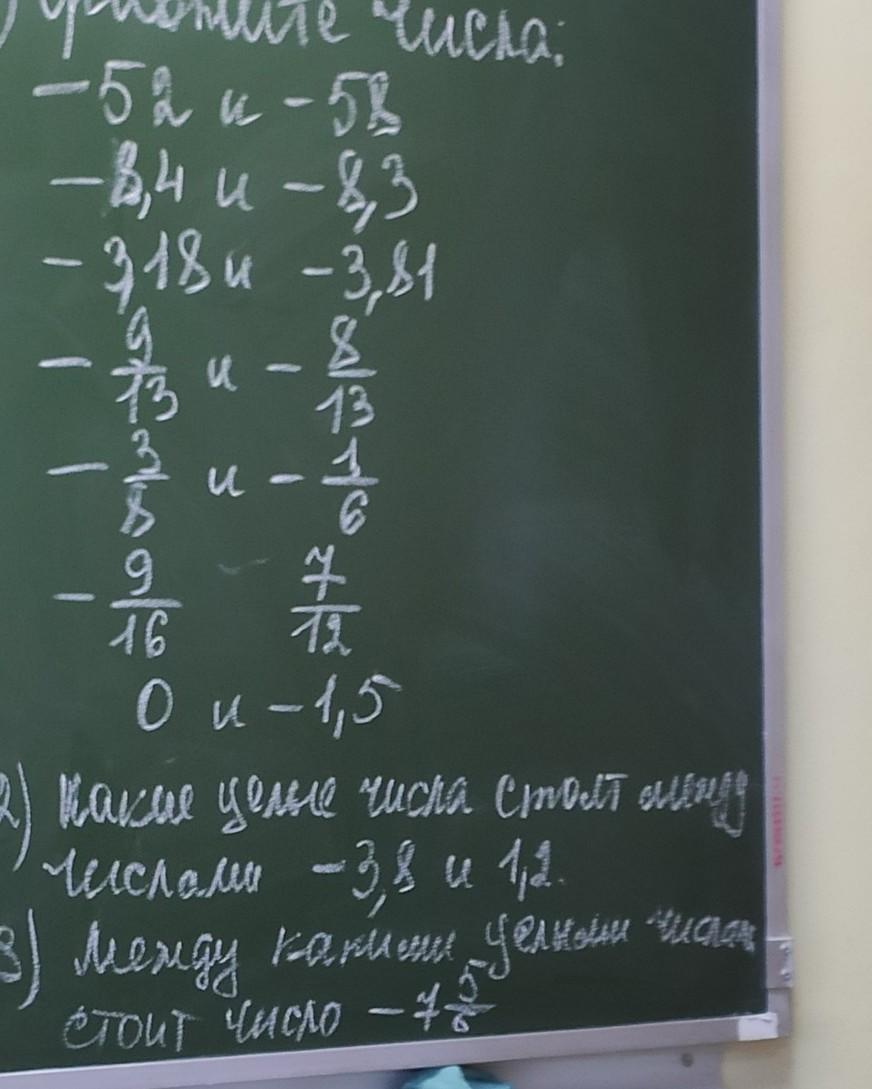 ) Сравните числа:
-52 и -58
-8,4 и -8,3
-3,18 и -3,81
-9/13 и -8/13
-3/8 и -1/6
-9/16 7/12
0 и -1,5
2) Какие целые числа стоят между
числами -3,8 и 1,2.
3) Между какими целыми числами
стоит число -7 5/6